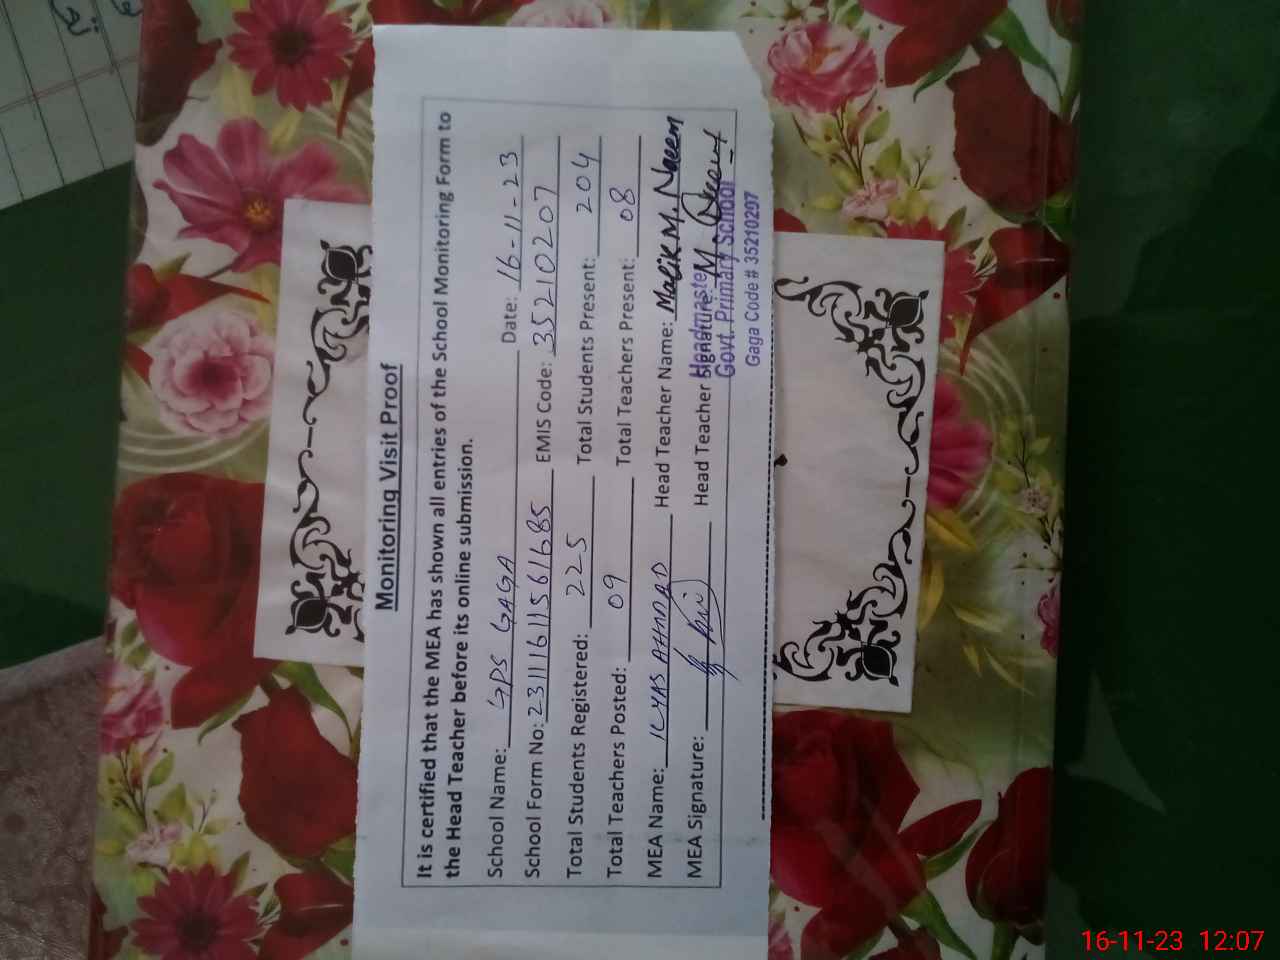 Monitoring Visit Proof
It is certified that the MEA has shown all entries of the School Monitoring Form to
the Head Teacher before its online submission.
School Name: GPS GAGA Date: 16-11-23
School Form No: 23111611561685 EMIS Code: 35210207
Total Students Registered: 225 Total Students Present: 204
Total Teachers Posted: 09 Total Teachers Present: 08
MEA Name: ILYAS AHMAD Head Teacher Name: Malik M. Naeem
MEA Signature: Head Teacher Signature: M.
Headmaster
Govt. Primary School
Gaga Code # 35210207
16-11-23 12:07